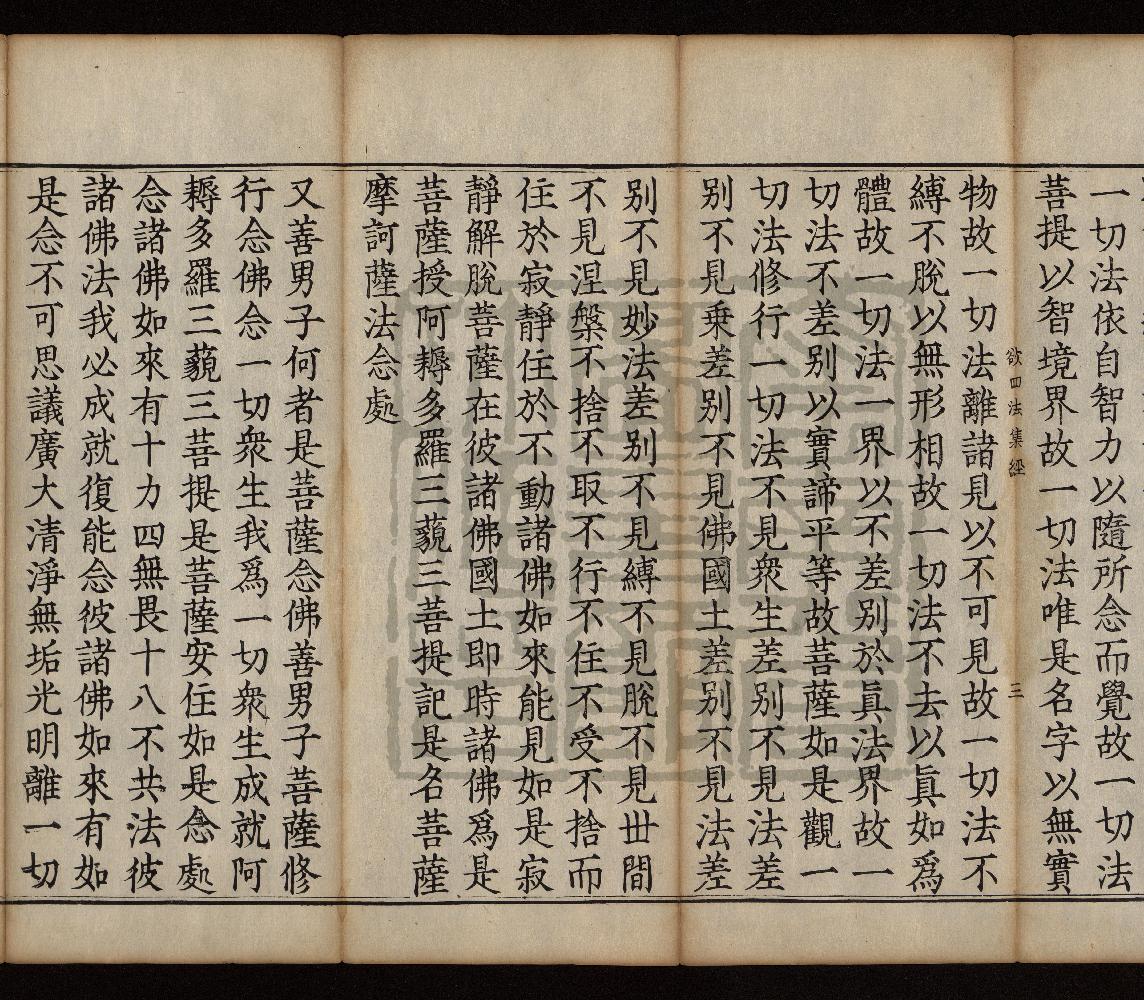 一切法依自智力以隨所念而覺故一切法
菩提以智境界故一切法唯是名字以無實
欲四法集經 三
物故一切法離諸見以不可見故一切法不
縛不脫以無形相故一切法不去以眞如爲
體故一切法一界以不差别於眞法界故一
切法不差别以實諦平等故菩薩如是觀一
切法修行一切法不見衆生差别不見法差
别不見乗差别不見佛國土差别不見法差
别不見妙法差别不見縛不見脫不見世間
不見涅槃不捨不取不行不住不受不捨而
住於寂靜住於不動諸佛如來能見如是寂
靜解脫菩薩在彼諸佛國土即時諸佛爲是
菩薩授阿耨多羅三藐三菩提記是名菩薩
摩訶薩法念處
又善男子何者是菩薩念佛善男子菩薩修
行念佛念一切衆生我爲一切衆生成就阿
耨多羅三藐三菩提是菩薩安住如是念處
念諸佛如來有十力四無畏十八不共法彼
諸佛法我必成就復能念彼諸佛如來有如
是念不可思議廣大清淨無垢光明離一切